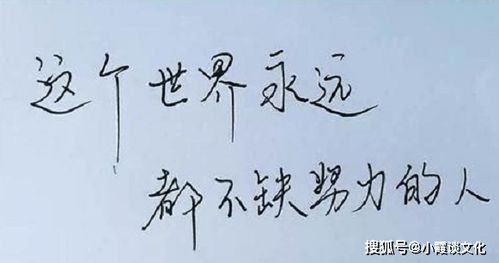 这个世界永远
都不缺努力的人
搜狐号@小霞谈文化